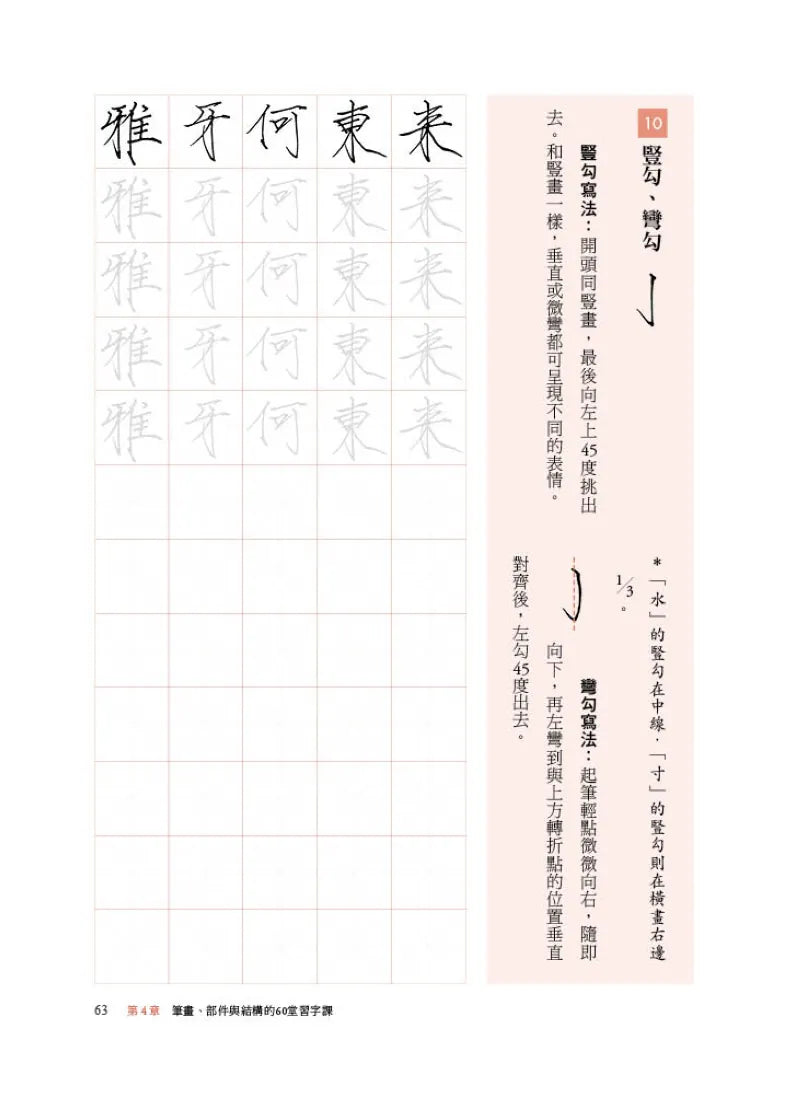 10 豎勾、彎勾
豎勾寫法：開頭同豎畫，最後向左上45度挑出
去。和豎畫一樣，垂直或微彎都可呈現不同的表情。
*「水」的豎勾在中線．「寸」的豎勾則在橫畫右邊
1/3。
彎勾寫法：起筆輕點微微向右，隨即
向下，再左彎到與上方轉折點的位置垂直
對齊後，左勾45度出去。
来来来来来
東東東東東
何何何何何
牙牙牙牙牙
雅雅雅雅雅
63 第4章 筆畫、部件與結構的60堂習字課